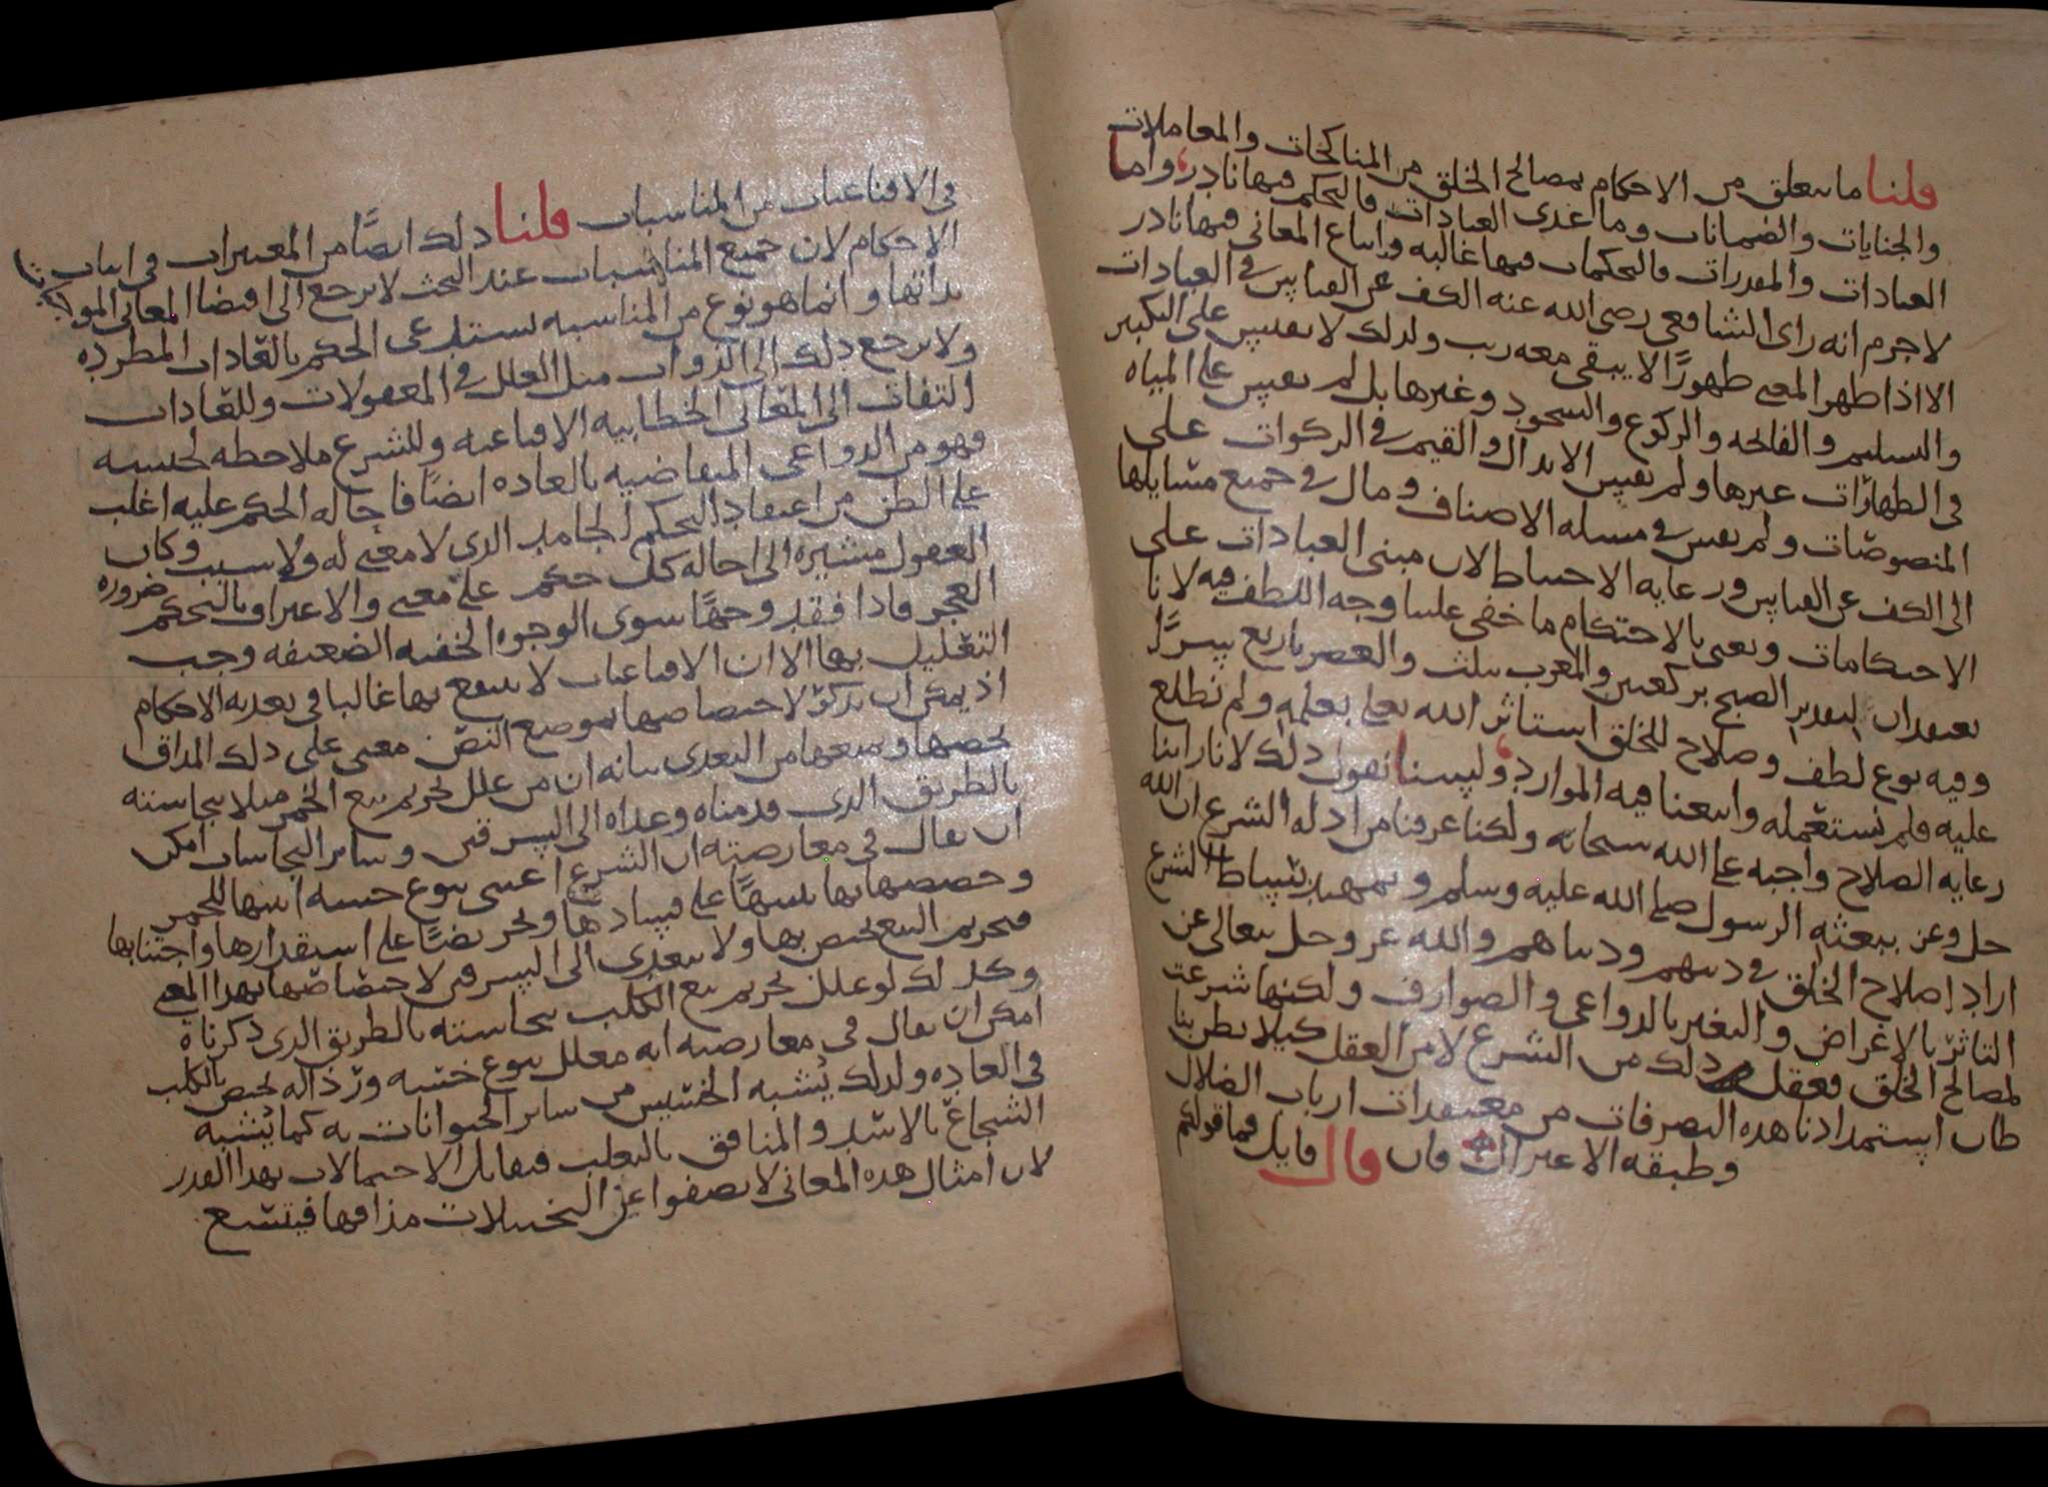 قلنا ما يتعلق من الاحكام بمصالح الخلق من المناكحات والمعاملات
والجنايات والضمانات وما عدى العبادات فالتحكم فيها نادر واما
العبادات والمقدرات فالتحكمات فيها غالبه واتباع المعانى فيها نادر
لا جرم انه راى الشافعى رضى الله عنه الكف عن القياس فى العبادات
الا اذا ظهر المعنى ظهورًا لا يبقى معه ريب ولذلك لا نقيس على التكبير
والتسليم والفاتحه والركوع والسجود وغيرها بل لم نقيس على المياه
فى الطهارات غيرها ولم نقيس الابدال والقيم فى الزكوات على
المنصوصات ولم نقس فى مسله الاصناف ومال فى جميع مسايلها
الى الكف عن القياس ورعايه الاحتياط لان مبنى العبادات على
الاحتكامات ونعنى بالاحتكام ما خفى علينا وجه اللطف فيه لانا
نعتقد ان لتقدير الصبح بركعتين والمغرب بثلث والعصر باربع سرًّا
وفيه نوع لطف وصلاح للخلق استاثر الله تعلى بعلمه ولم نطلع
عليه فلم نستعمله واتبعنا فيه الموارد ولسنا نقول ذلك لانا راينا
رعايه الصلاح واجبه على الله سبحانه ولكنا عرفنا من ادله الشرع ان الله
جل وعز ببعثه الرسول صلى الله عليه وسلم وتمهيد بساط الشرع
اراد اصلاح الخلق فى دينهم ودنياهم والله عز وجل يتعالى عن
التاثر بالاغراض والتغير بالدواعى والصوارف ولكنها شرعت
لمصالح الخلق فعقل ذلك من الشرع لا من العقل كيلا يظن بنا
ظان استمدادنا هذه التصرفات من معتقدات ارباب الضلال
وطبقه الاعتزال فان قال قايل فما قولكم
فى الاقناعيات من المناسبات قلنا ذلك ايضًا من المعتبرات فى اثبات
الاحكام لان جميع المناسبات عند البحث لا يرجع الى اقتضا المعانى
بذاتها وانما هو نوع من المناسبه تستدعى الحكم بالعادات المطرده
ولا يرجع ذلك الى الذوات مثل العلل فى المعقولات وللعادات
التفات الى المعانى الخطابيه الاقناعيه وللشرع ملاحظه لجنسه
فهو من الدواعى المتقاضيه بالعاده ايضًا فاحاله الحكم عليه اغلب
على الظن من اعتقاد التحكم الجامد الذى لا معنى له ولا سبب وكان
العقول مشيره الى احاله كل حكم على معنى والاعتراف بالتحكم ضروره
العجز فاذا فقد وجهًا سوى الوجوه الخفيه الضعيفه وجب
التعليل بها الا ان الاقناعيات لا ينتفع بها غالبا فى تعديه الاحكام
اذ يمكن ان يذكر لاختصاصها بموضع النص معنى على ذلك المذاق
يخصها ويمنعها من التعدى بيانه ان من علل تحريم بيع الخمر مثلا بنجاسته
بالطريق الذى قدمناه وعداه الى السرقين وساير النجاسات امكن
ان يقال فى معارضته ان الشرع اعتنى بنوع خسه اثبتها للخمر
وخصصها بها تنبيهًا على فسادها وتحريضًا على استقذارها واجتنابها
فتحريم البيع يختص بها ولا يتعدى الى السرقين لاختصاصها بهذا المعنى
وكذلك لو علل تحريم بيع الكلب بنجاسته بالطريق الذى ذكرناه
امكن ان يقال فى معارضته انه معلل بنوع خسه ورذاله يختص بالكلب
فى العاده ولذلك يُشبه الخسيس من ساير الحيوانات به كما يُشبه
الشجاع بالاسد والمنافق بالثعلب فتقابل الاحتمالات بهذا القدر
لان امثال هذه المعانى لا يصفوا عن التخييلات مذاقها فيتسع